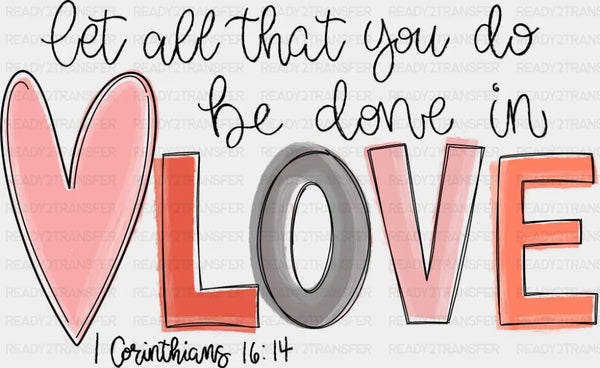 let all that you do
be done in
LOVE
1 Corinthians 16:14
READY2TRANSFER